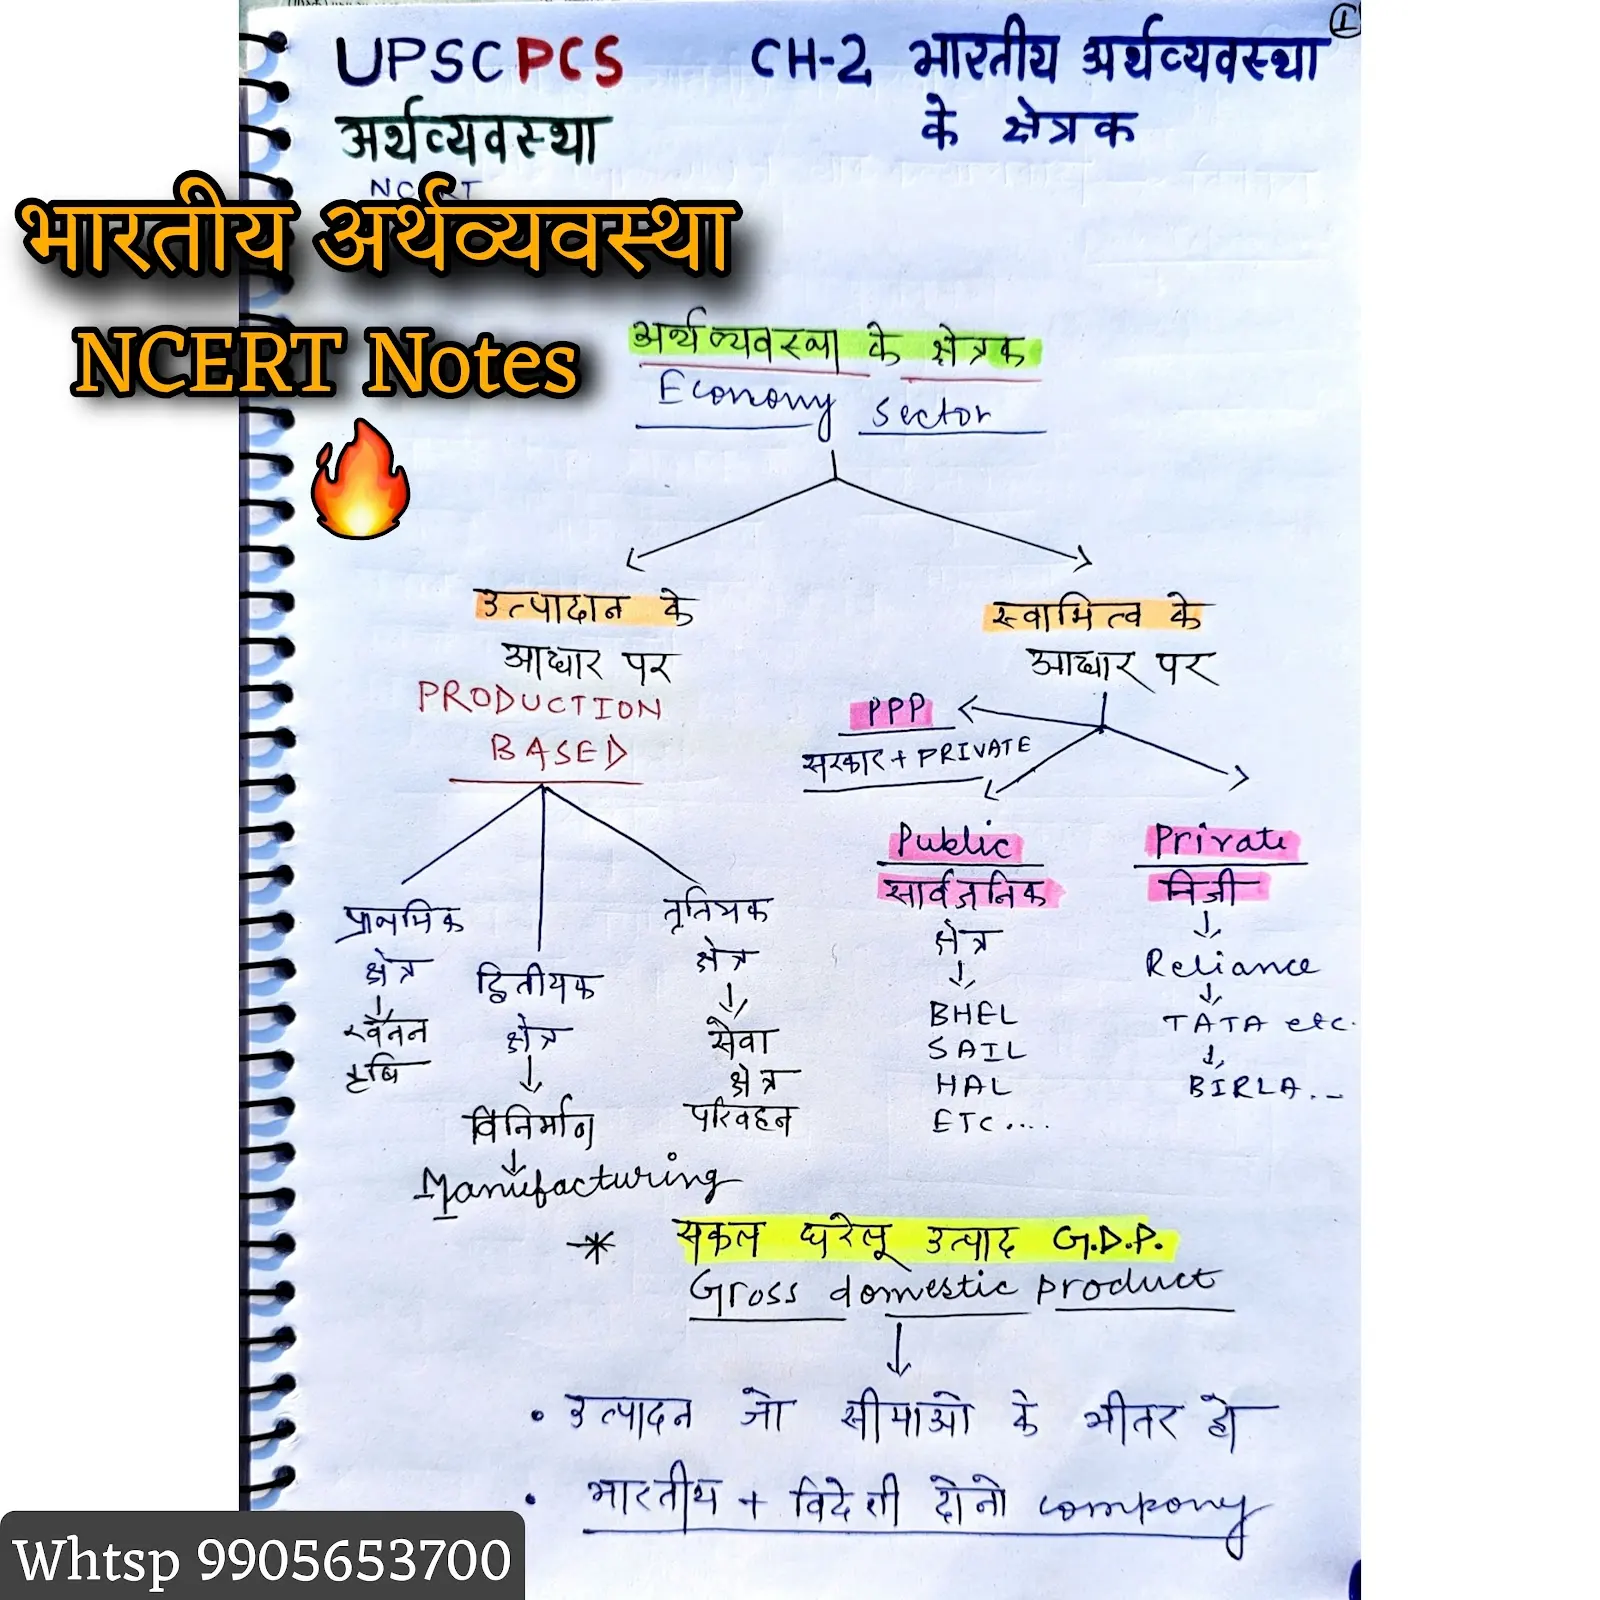 UPSC PCS
CH-2 भारतीय अर्थव्यवस्था
के क्षेत्रक
1
अर्थव्यवस्था
NCERT
भारतीय अर्थव्यवस्था
NCERT Notes
अर्थव्यवस्था के क्षेत्रक
Economy Sector
उत्पादान के
आधार पर
PRODUCTION
BASED
स्वामित्व के
आधार पर
PPP
सरकार + PRIVATE
प्राथमिक
क्षेत्र
खनन
कृषि
द्वितीयक
क्षेत्र
विनिर्माण
Manufacturing
तृतियक
क्षेत्र
सेवा
क्षेत्र
परिवहन
Public
सार्वजनिक
क्षेत्र
BHEL
SAIL
HAL
ETC....
Private
निजी
Reliance
TATA etc.
BIRLA...
सकल घरेलू उत्पाद G.D.P.
Gross domestic product
• उत्पादन जो सीमाओ के भीतर हो
• भारतीय + विदेशी दोनो company
Whtsp 9905653700